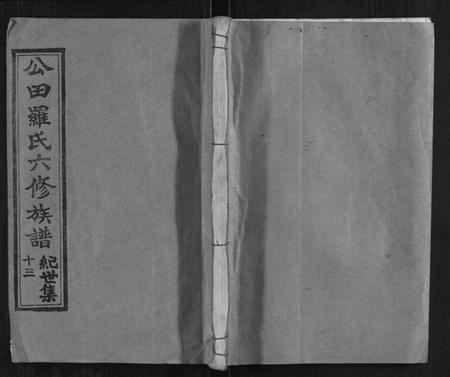 公田羅氏六修族譜
紀世集
十三